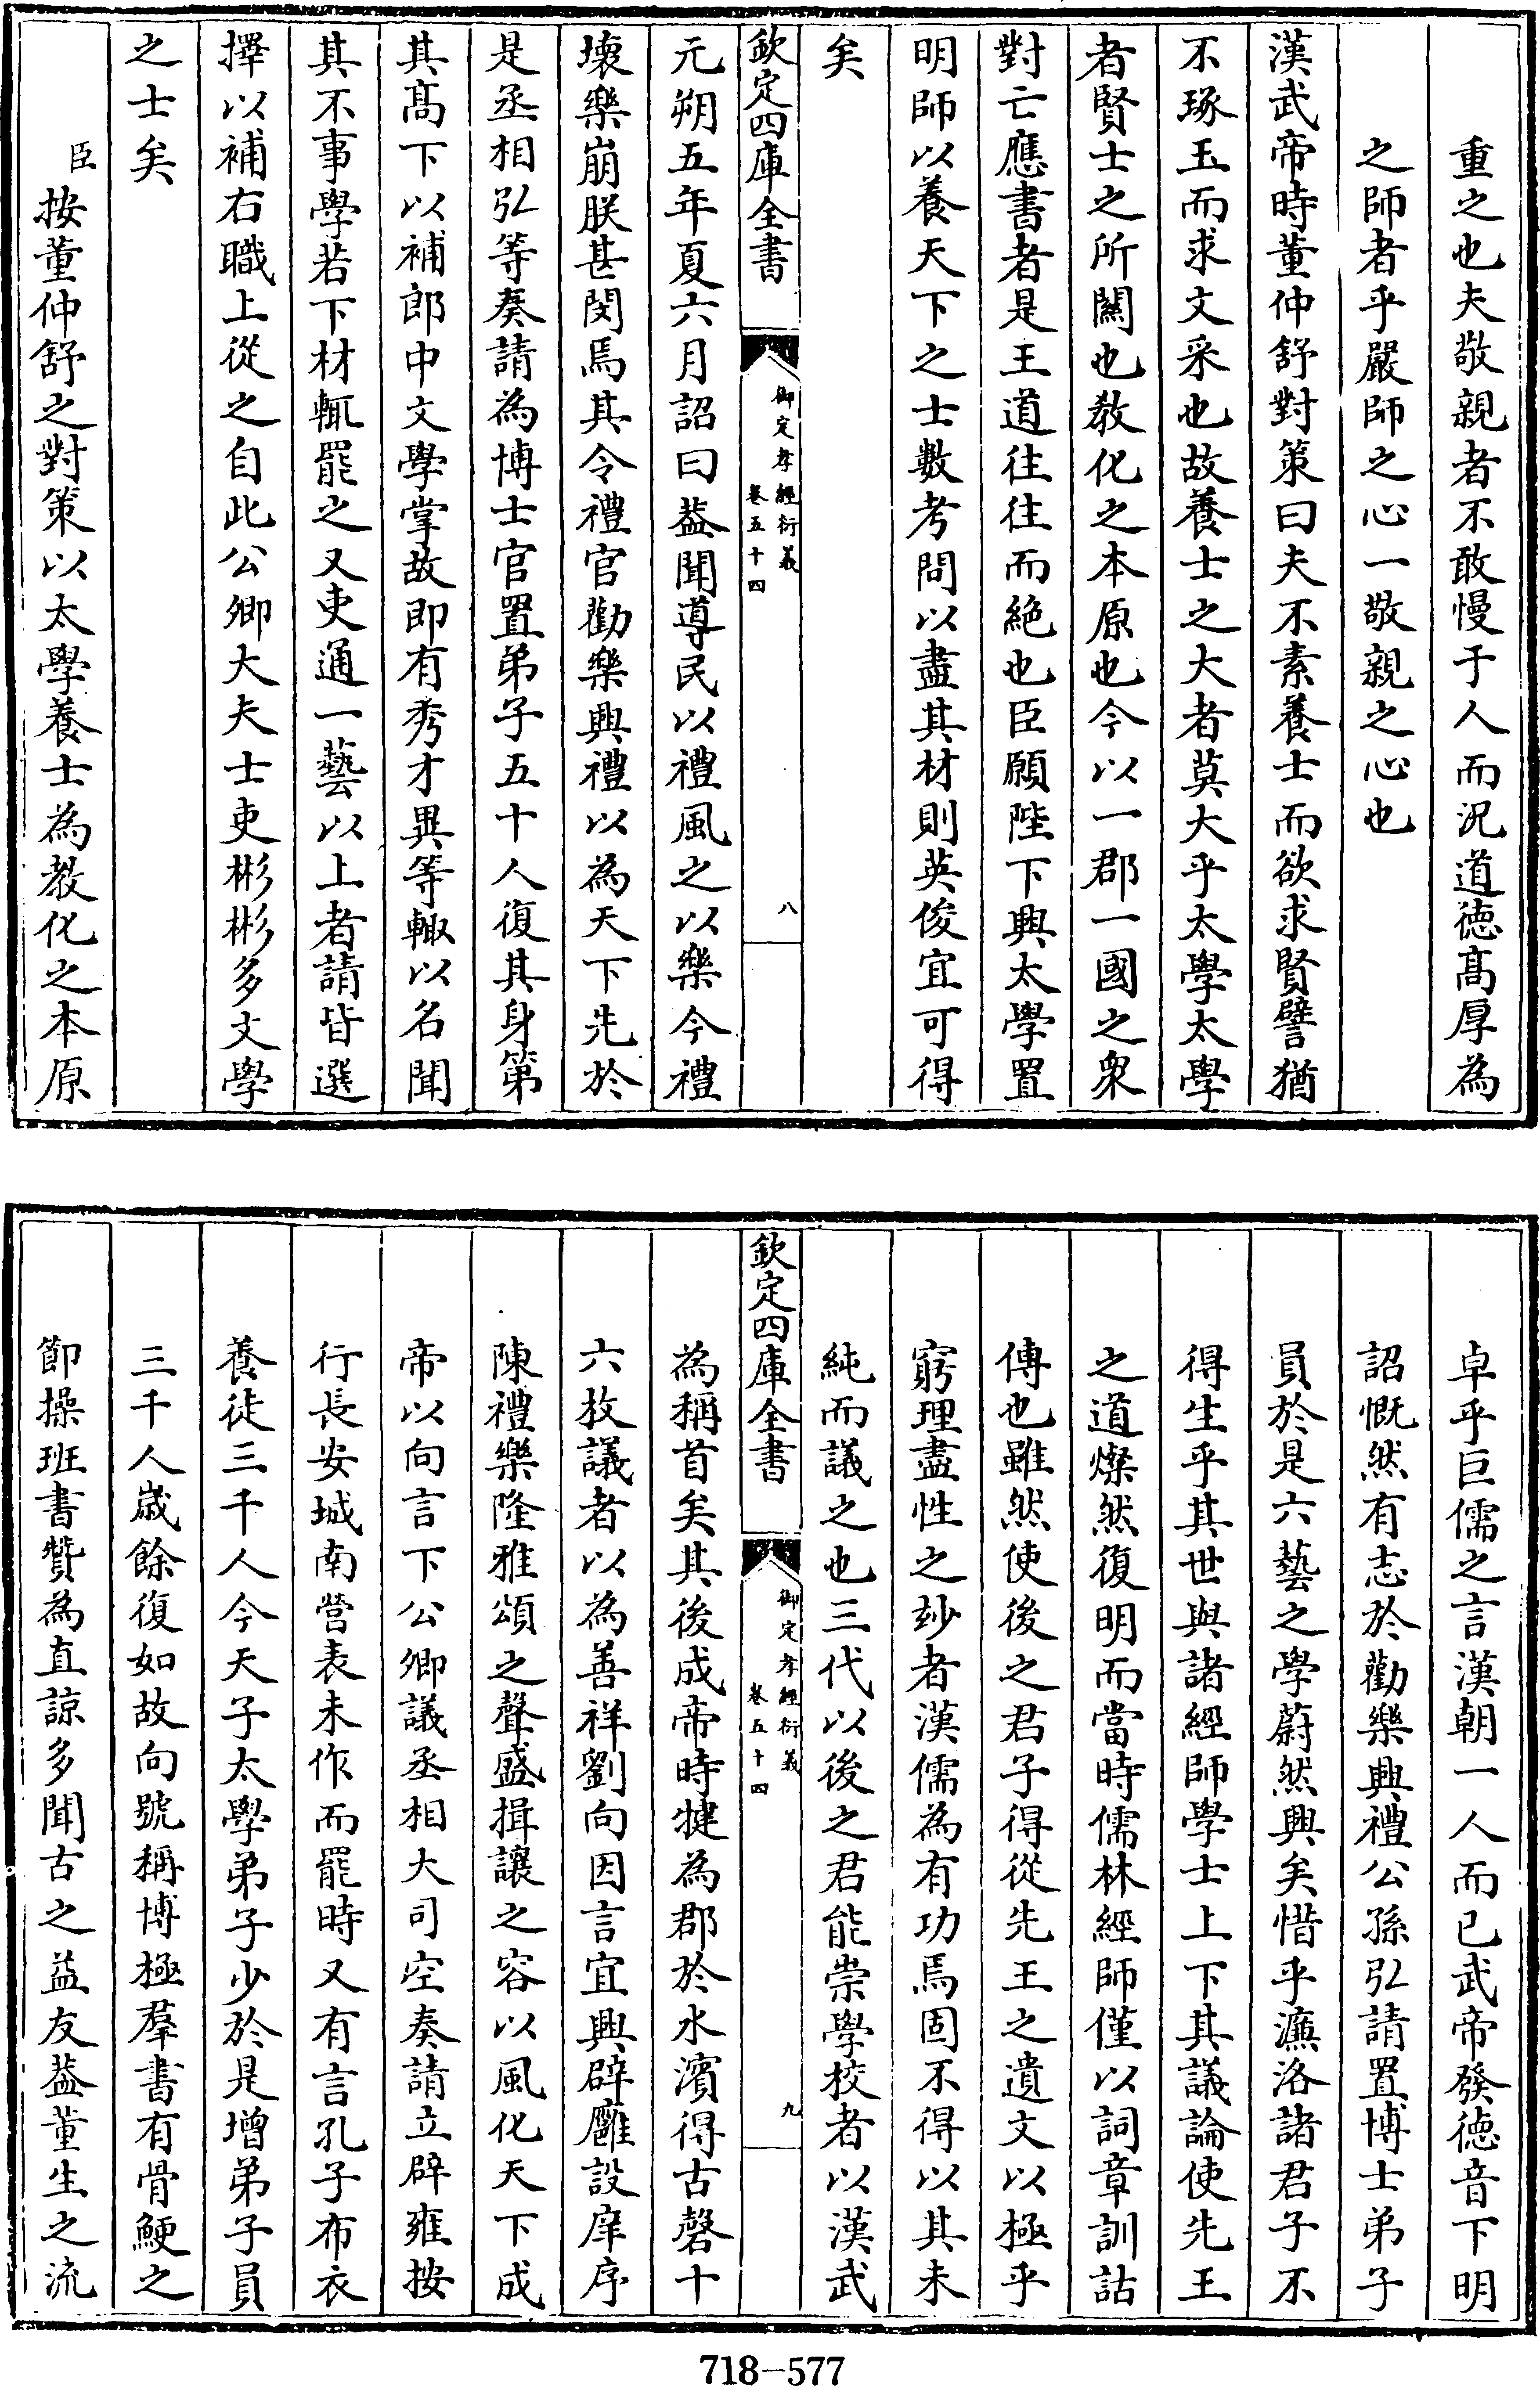 重之也夫敬親者不敢慢于人而況道德髙厚為
之師者乎嚴師之心一敬親之心也
漢武帝時董仲舒對策曰夫不素養士而欲求賢譬猶
不琢玉而求文采也故養士之大者莫大乎太學太學
者賢士之所闗也敎化之本原也今以一郡一國之衆
對亡應書者是王道往往而絶也臣願陛下興太學置
明師以養天下之士數考問以盡其材則英俊宜可得
矣
欽定四庫全書
御定孝經衍義
卷五十四
八
元朔五年夏六月詔曰葢聞導民以禮風之以樂今禮
壊樂崩朕甚閔焉其令禮官勸樂興禮以為天下先於
是丞相弘等奏請為博士官置弟子五十人復其身第
其髙下以補郎中文學掌故即有秀才異等輙以名聞
其不事學若下材輒罷之又吏通一藝以上者請皆選
擇以補右職上從之自此公卿大夫士吏彬彬多文學
之士矣
臣按董仲舒之對策以太學養士為教化之本原
卓乎巨儒之言漢朝一人而已武帝發德音下明
詔慨然有志於勸樂興禮公孫弘請置博士弟子
員於是六藝之學蔚然興矣惜乎濂洛諸君子不
得生乎其世與諸經師學士上下其議論使先王
之道燦然復明而當時儒林經師僅以詞章訓詁
傳也雖然使後之君子得從先王之遺文以極乎
窮理盡性之玅者漢儒為有功焉固不得以其未
純而議之也三代以後之君能崇學校者以漢武
欽定四庫全書
御定孝經衍義
卷五十四
九
為稱首矣其後成帝時犍為郡於水濱得古磬十
六枚議者以為善祥劉向因言宜興辟廱設庠序
陳禮樂隆雅頌之聲盛揖讓之容以風化天下成
帝以向言下公卿議丞相大司空奏請立辟雍按
行長安城南營表未作而罷時又有言孔子布衣
養徒三千人今天子太學弟子少於是增弟子員
三千人歲餘復如故向號稱博極羣書有骨鯁之
節操班書贊為直諒多聞古之益友葢董生之流
718-577